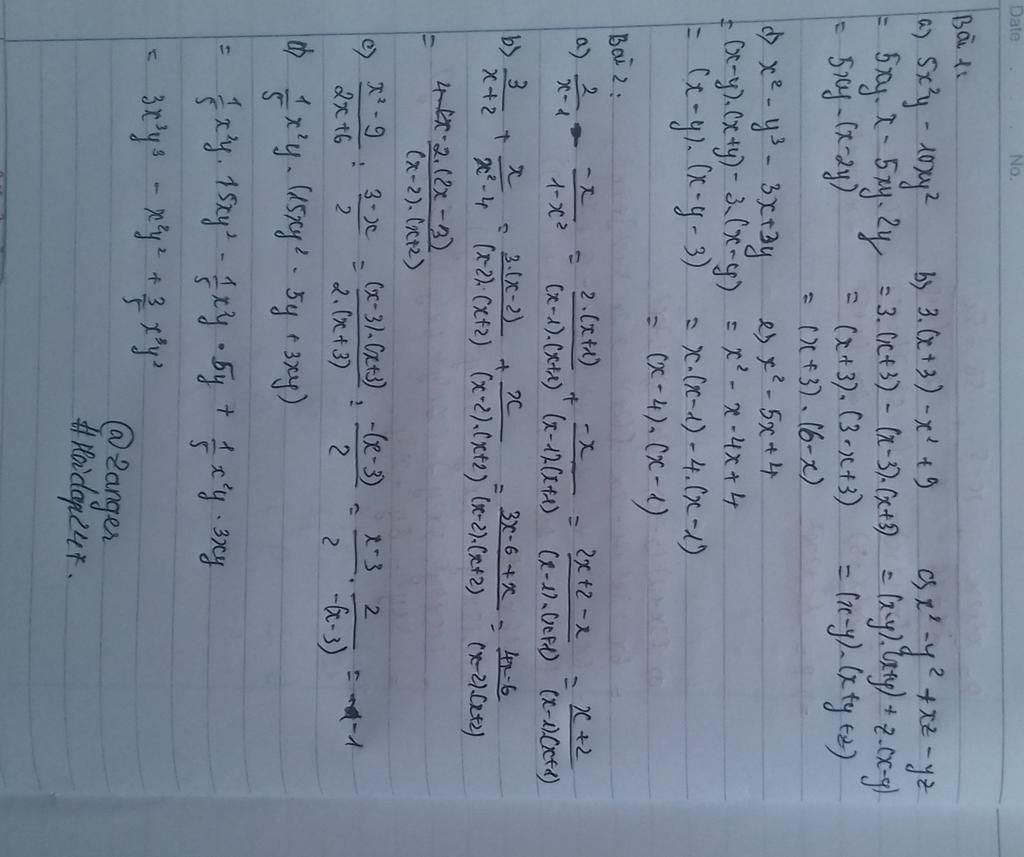 Date No.
Bài 1:
a) 5x²y - 10xy² b) 3.(x+3) - x² + 9 c) x² - y² + xz - yz
= 5xy.x - 5xy.2y = 3.(x+3) - (x-3).(x+3) = (x-y).(x+y) + z.(x-y)
= 5xy.(x-2y) = (x+3).(3-x+3) = (x-y).(x+y+z)
= (x+3).(6-x)
d) x² - y³ - 3x + 3y e) x² - 5x + 4
= (x-y).(x+y) - 3.(x-y) = x² - x - 4x + 4
= (x-y).(x-y-3) = x.(x-1) - 4.(x-1)
= (x-4).(x-1)
Bài 2:
a) 2/(x-1) - (-x)/(1-x²) = 2.(x+1)/((x-1).(x+1)) + (-x)/((x-1).(x+1)) = (2x+2-x)/((x-1).(x+1)) = (x+2)/((x-1)(x+1))
b) 3/(x+2) + x/(x²-4) = 3.(x-2)/((x-2).(x+2)) + x/((x-2).(x+2)) = (3x-6+x)/((x-2).(x+2)) = (4x-6)/((x-2).(x+2))
= 2.(2x-3)/((x-2).(x+2))
c) (x²-9)/(2x+6) : (3-x)/2 = (x-3).(x+3)/(2.(x+3)) : -(x-3)/2 = (x-3)/2 . 2/(-(x-3)) = -1
d) 1/5 x²y.(15xy² - 5y + 3xy)
= 1/5 x²y.15xy² - 1/5 x²y.5y + 1/5 x²y.3xy
= 3x³y³ - x²y² + 3/5 x³y²
@2anger
#Hoidap247.